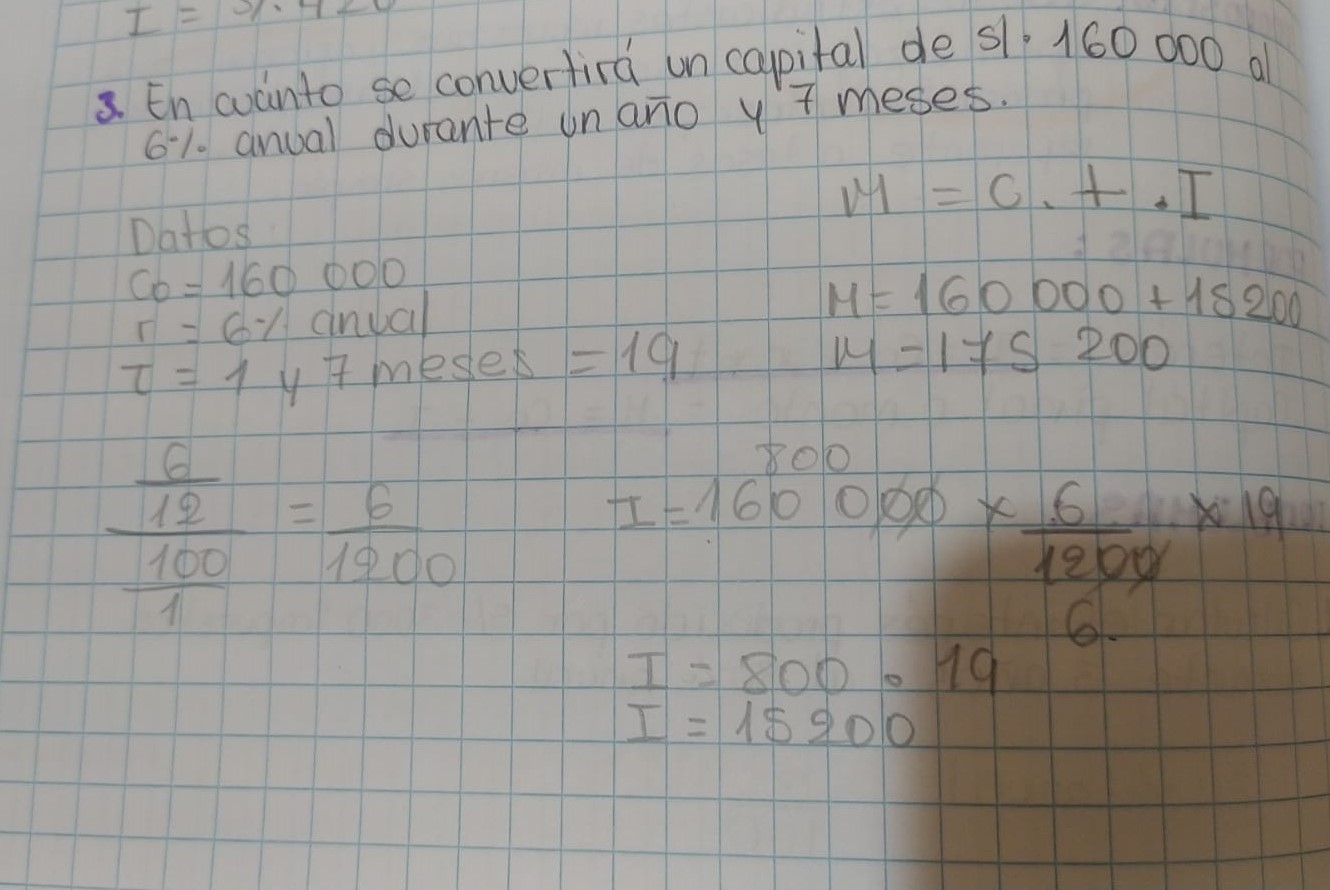 I = S/. 420
3. En cuánto se convertirá un capital de s/. 160 000 al
6% anual durante un año y 7 meses.
M = C. + . I
Datos
Co = 160 000
r = 6% anual
T = 1 y 7 meses = 19
M = 160 000 + 15200
M = 175 200
6
12
100
1
= 6
1200
800
I = 160 000 x 6 x 19
1200
6.
I = 800 . 19
I = 15200